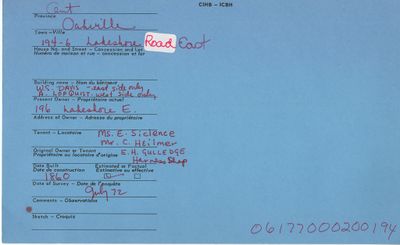 Ont
CIHB - ICBH
Province
Oakville
Town - Ville
194-6 Lakeshore Road East
House No. and Street - Concession and Lot
Numéro de maison et rue - concession et lot
Building name - Nom du bâtiment
W.S. DAVIS - east side only
A. LOFQUIST. west side only
Present Owner - Propriétaire actuel
196 Lakeshore E.
Address of Owner - Adresse du propriétaire
Tenant - Locataire Ms. E. Sielence
Mr. C. Heilmer
Original Owner or Tenant E.H. GULLEDGE
Propriétaire ou locataire d'origine
Harness Shop
Date Built Estimated or Factual
Date de construction Estimative ou effective
1860
Date of Survey - Date de l'enquête
July 72
Comments - Observations
Sketch - Croquis
06177000200194